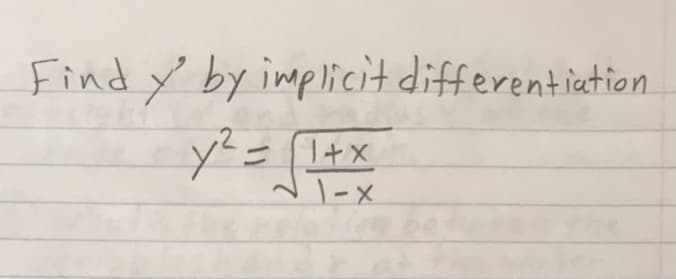 Find y' by implicit differentiation
y² = √((1+x)/(1-x))